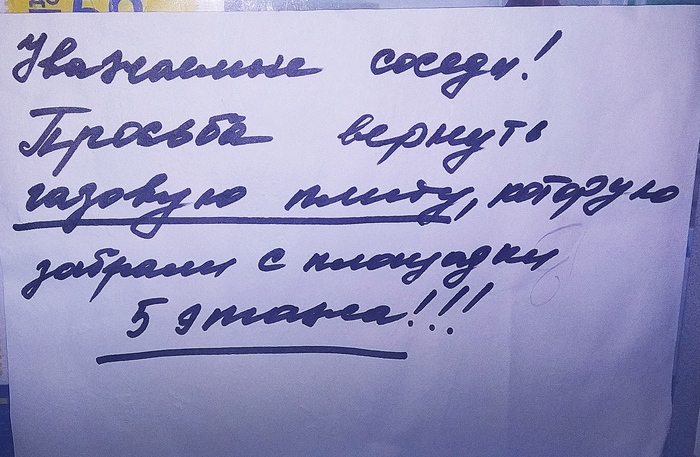 Уважаемые соседи!
Просьба вернуть
газовую плиту, которую
забрали с площадки
5 этажа!!!